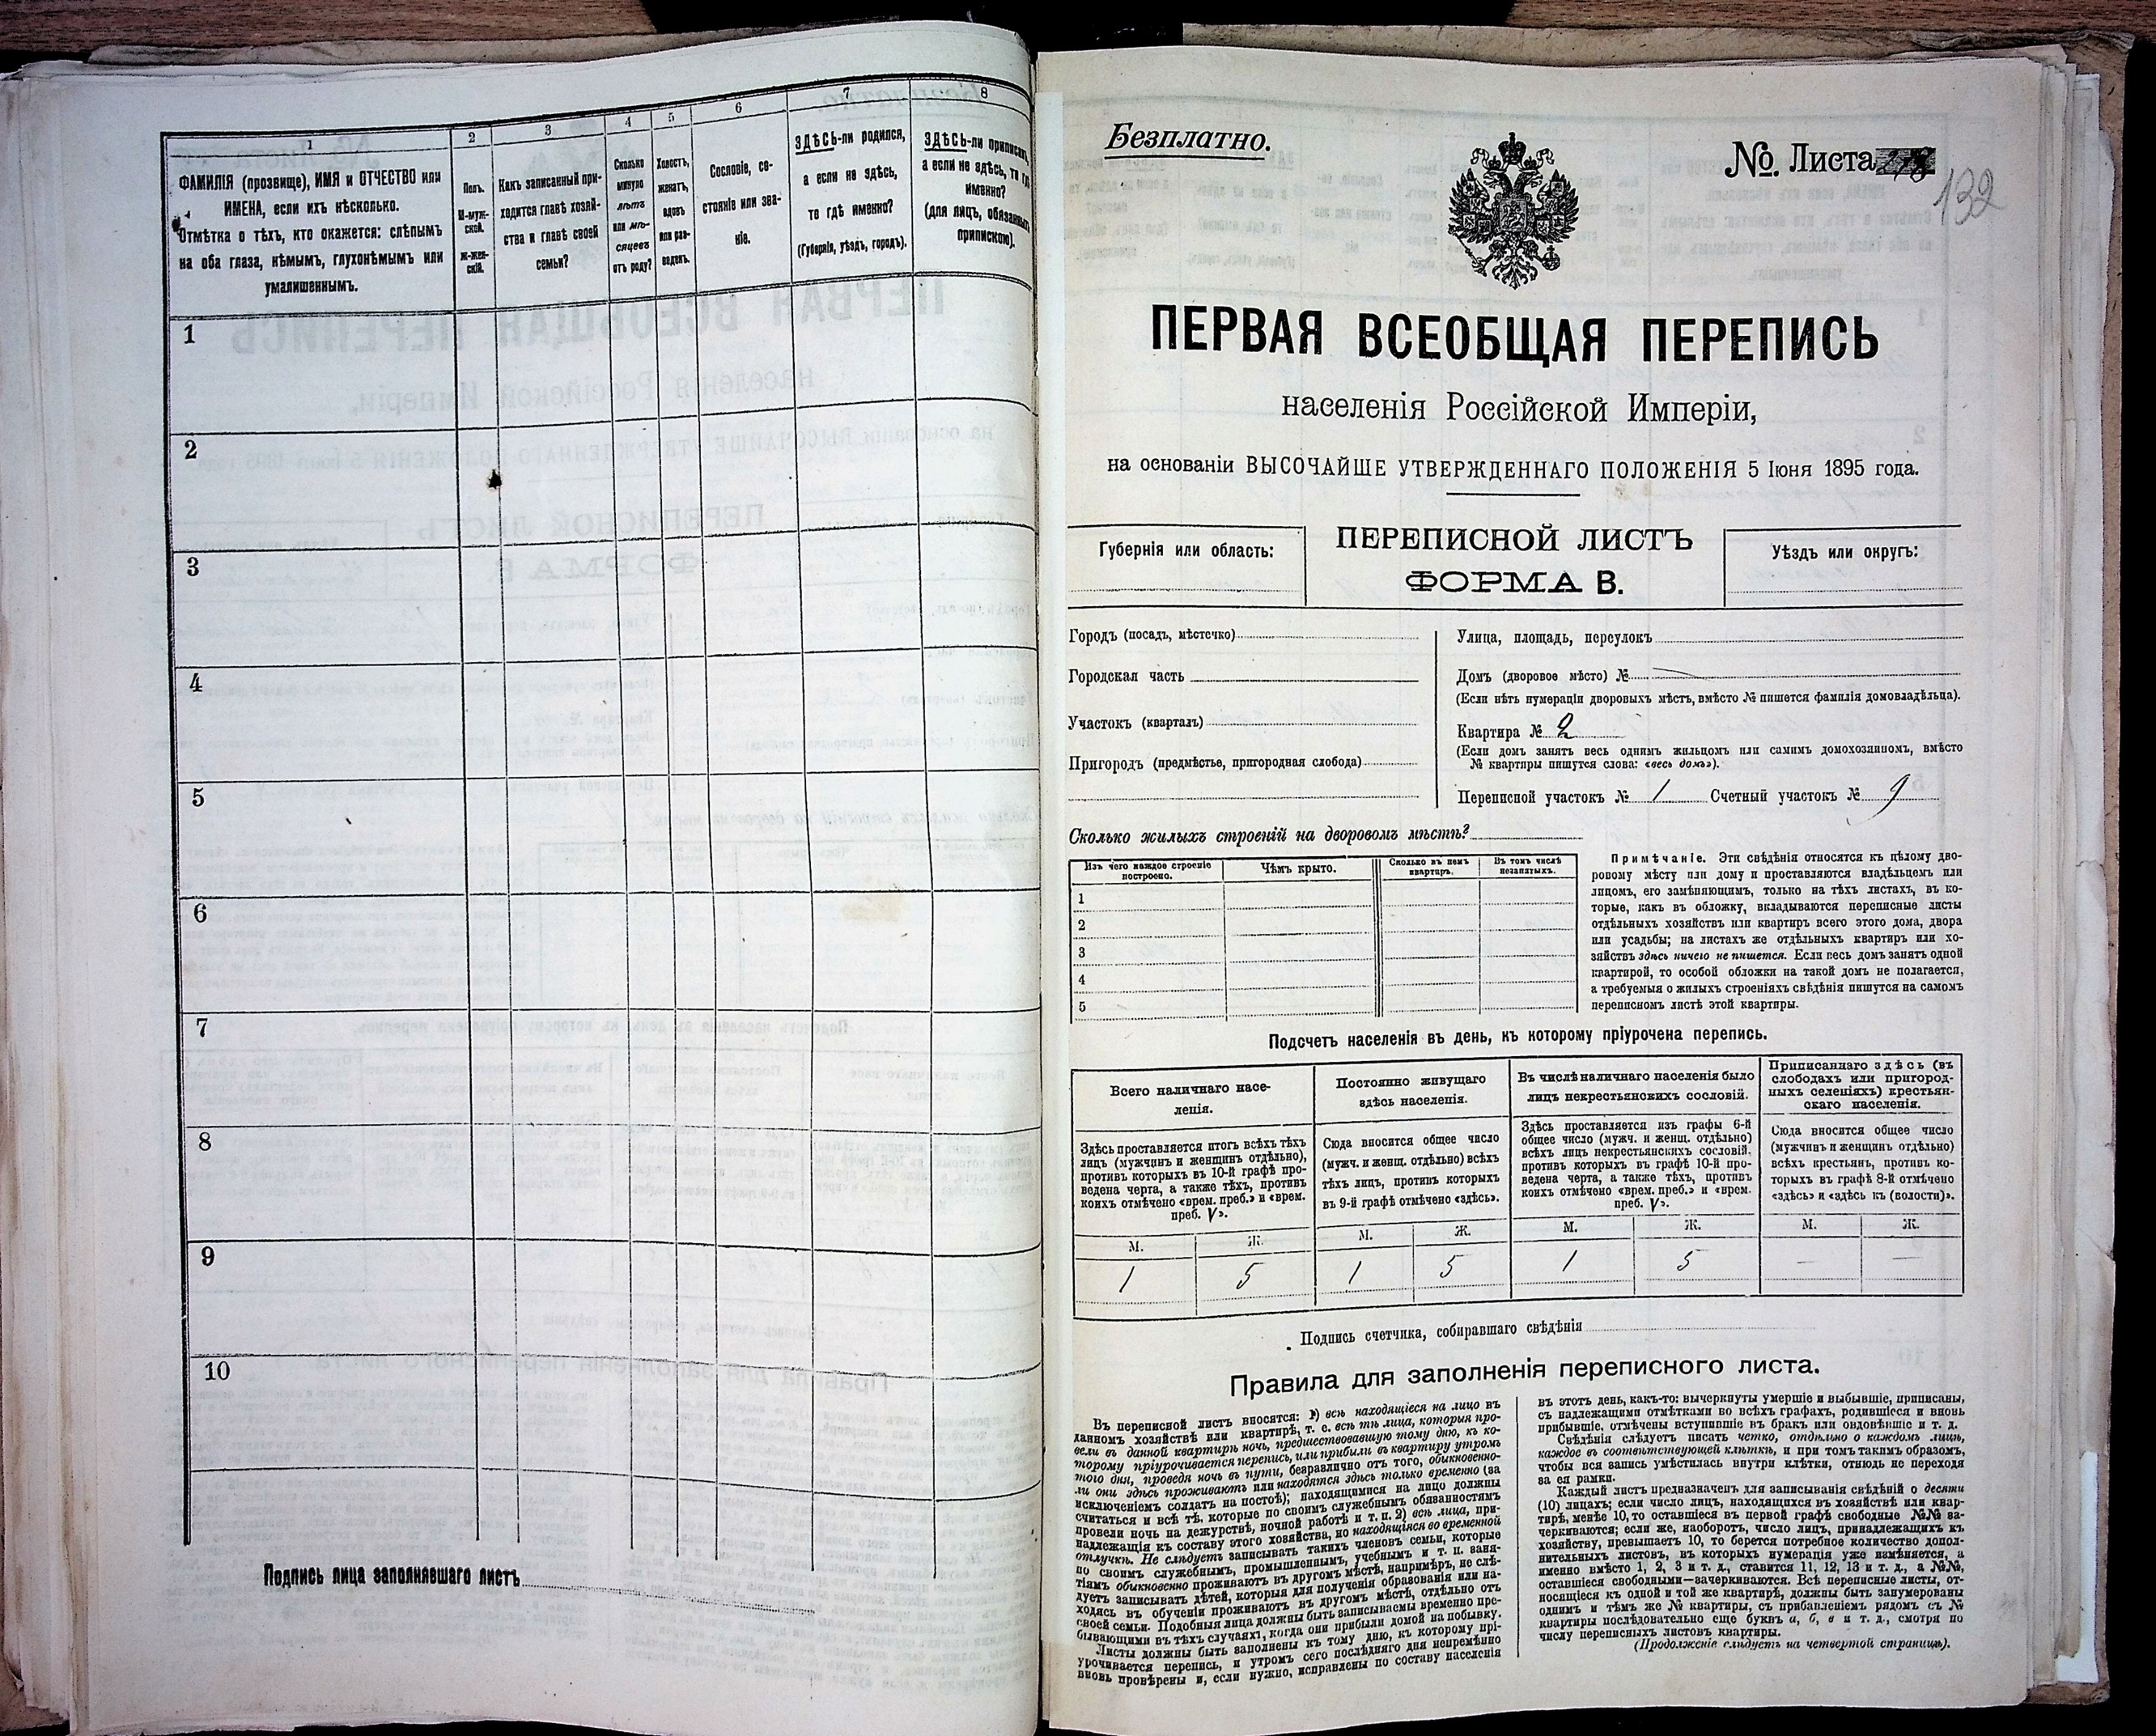 1
ФАМИЛІЯ (прозвище), ИМЯ и ОТЧЕСТВО или
ИМЕНА, если ихъ нѣсколько.
Отмѣтка о тѣхъ, кто окажется: слѣпымъ
на оба глаза, нѣмымъ, глухонѣмымъ или
умалишеннымъ.
2
Полъ.
М-муж-
ской.
Ж-жен-
скій.
3
Какъ записанный при-
ходится главѣ хозяй-
ства и главѣ своей
семьи?
4
Сколько
минуло
лѣтъ
или мѣ-
сяцевъ
отъ роду?
5
Холостъ,
женатъ,
вдовъ
или раз-
веденъ.
6
Сословіе, со-
стояніе или зва-
ніе.
7
ЗДѢСЬ-ли родился,
а если не здѣсь,
то гдѣ именно?
(Губернія, уѣздъ, городъ).
8
ЗДѢСЬ-ли приписанъ,
а если не здѣсь, то гдѣ
именно?
(для лицъ, обязанныхъ
припискою).
1
2
3
4
5
6
7
8
9
10
Подпись лица заполнявшаго листъ
Безплатно.
№. Листа
132
ПЕРВАЯ ВСЕОБЩАЯ ПЕРЕПИСЬ
населенія Россійской Имперіи,
на основаніи ВЫСОЧАЙШЕ УТВЕРЖДЕННАГО ПОЛОЖЕНІЯ 5 Іюня 1895 года.
Губернія или область:
ПЕРЕПИСНОЙ ЛИСТЪ
ФОРМА В.
Уѣздъ или округъ:
Городъ (посадъ, мѣстечко)
Городская часть
Участокъ (кварталъ)
Пригородъ (предмѣстье, пригородная слобода)
Улица, площадь, переулокъ
Домъ (дворовое мѣсто) №
(Если нѣтъ нумераціи дворовыхъ мѣстъ, вмѣсто № пишется фамилія домовладѣльца).
Квартира № 2
(Если домъ занятъ весь однимъ жильцомъ или самимъ домохозяиномъ, вмѣсто
№ квартиры пишутся слова: «весь домъ»).
Переписной участокъ № 1 Счетный участокъ № 9
Сколько жилыхъ строеній на дворовомъ мѣстѣ?
Изъ чего каждое строеніе
построено.
Чѣмъ крыто.
Сколько въ немъ
квартиръ.
Въ томъ числѣ
незанятыхъ.
1
2
3
4
5
Примѣчаніе. Эти свѣдѣнія относятся къ цѣлому дво-
ровому мѣсту или дому и проставляются владѣльцемъ или
лицомъ, его замѣняющимъ, только на тѣхъ листахъ, въ ко-
торые, какъ въ обложку, вкладываются переписные листы
отдѣльныхъ хозяйствъ или квартиръ всего этого дома, двора
или усадьбы; на листахъ же отдѣльныхъ квартиръ или хо-
зяйствъ здѣсь ничего не пишется. Если весь домъ занятъ одной
квартирой, то особой обложки на такой домъ не полагается,
а требуемыя о жилыхъ строеніяхъ свѣдѣнія пишутся на самомъ
переписномъ листѣ этой квартиры.
Подсчетъ населенія въ день, къ которому пріурочена перепись.
Всего наличнаго насе-
ленія.
Постоянно живущаго
здѣсь населенія.
Въ числѣ наличнаго населенія было
лицъ некрестьянскихъ сословій.
Приписаннаго здѣсь (въ
слободахъ или пригород-
ныхъ селеніяхъ) крестьян-
скаго населенія.
Здѣсь проставляется итогъ всѣхъ тѣхъ
лицъ (мужчинъ и женщинъ отдѣльно),
противъ которыхъ въ 10-й графѣ про-
ведена черта, а также тѣхъ, противъ
коихъ отмѣчено «врем. преб.» и «врем.
преб. V».
Сюда вносится общее число
(мужч. и женщ. отдѣльно) всѣхъ
тѣхъ лицъ, противъ которыхъ
въ 9-й графѣ отмѣчено «здѣсь».
Здѣсь проставляется изъ графы 6-й
общее число (мужч. и женщ. отдѣльно)
всѣхъ лицъ некрестьянскихъ сословій,
противъ которыхъ въ графѣ 10-й про-
ведена черта, а также тѣхъ, противъ
коихъ отмѣчено «врем. преб.» и «врем.
преб. V».
Сюда вносится общее число
(мужчинъ и женщинъ отдѣльно)
всѣхъ крестьянъ, противъ ко-
торыхъ въ графѣ 8-й отмѣчено
«здѣсь» и «здѣсь къ (волости)».
М. Ж. М. Ж. М. Ж. М. Ж.
1 5 1 5 1 5 — —
Подпись счетчика, собиравшаго свѣдѣнія
Правила для заполненія переписного листа.
Въ переписной листъ вносятся: 1) всѣ находящіеся на лицо въ
данномъ хозяйствѣ или квартирѣ, т. е. всѣ тѣ лица, которыя про-
вели въ данной квартирѣ ночь, предшествовавшую тому дню, къ ко-
торому пріурочивается перепись, или прибыли въ квартиру утромъ
того дня, проведя ночь въ пути, безразлично отъ того, обыкновенно-
ли они здѣсь проживаютъ или находятся здѣсь только временно (за
исключеніемъ солдатъ на постоѣ); находящимися на лицо должны
считаться и всѣ тѣ, которые по своимъ служебнымъ обязанностямъ
провели ночь на дежурствѣ, ночной работѣ и т. п. 2) всѣ лица, при-
надлежащія къ составу этого хозяйства, но находящіяся во временной
отлучкѣ. Не слѣдуетъ записывать такихъ членовъ семьи, которые
по своимъ служебнымъ, промышленнымъ, учебнымъ и т. п. заня-
тіямъ обыкновенно проживаютъ въ другомъ мѣстѣ, напримѣръ, не слѣ-
дуетъ записывать дѣтей, которыя для полученія образованія или на-
ходясь въ обученіи проживаютъ въ другомъ мѣстѣ, отдѣльно отъ
своей семьи. Подобныя лица должны быть записываемы временно пре-
бывающими въ тѣхъ случаяхъ, когда они прибыли домой на побывку.
Листы должны быть заполнены къ тому дню, къ которому прі-
урочивается перепись, и утромъ сего послѣдняго дня непремѣнно
вновь провѣрены и, если нужно, исправлены по составу населенія
въ этотъ день, какъ-то: вычеркнуты умершіе и выбывшіе, приписаны,
съ надлежащими отмѣтками во всѣхъ графахъ, родившіеся и вновь
прибывшіе, отмѣчены вступившіе въ бракъ или овдовѣвшіе и т. д.
Свѣдѣнія слѣдуетъ писать четко, отдѣльно о каждомъ лицѣ,
каждое въ соотвѣтствующей клѣткѣ, и при томъ такимъ образомъ,
чтобы вся запись умѣстилась внутри клѣтки, отнюдь не переходя
за ея рамки.
Каждый листъ предназначенъ для записыванія свѣдѣній о десяти
(10) лицахъ; если число лицъ, находящихся въ хозяйствѣ или квар-
тирѣ, менѣе 10, то оставшіеся въ первой графѣ свободные №№ за-
черкиваются; если же, наоборотъ, число лицъ, принадлежащихъ къ
хозяйству, превышаетъ 10, то берется потребное количество допол-
нительныхъ листовъ, въ которыхъ нумерація уже измѣняется, а
именно вмѣсто 1, 2, 3 и т. д., ставится 11, 12, 13 и т. д., а №№,
оставшіеся свободными—зачеркиваются. Всѣ переписные листы, от-
носящіеся къ одной и той же квартирѣ, должны быть занумерованы
однимъ и тѣмъ же № квартиры, съ прибавленіемъ рядомъ съ №
квартиры послѣдовательно еще буквъ а, б, в и т. д., смотря по
числу переписныхъ листовъ квартиры.
(Продолженіе слѣдуетъ на четвертой страницѣ).